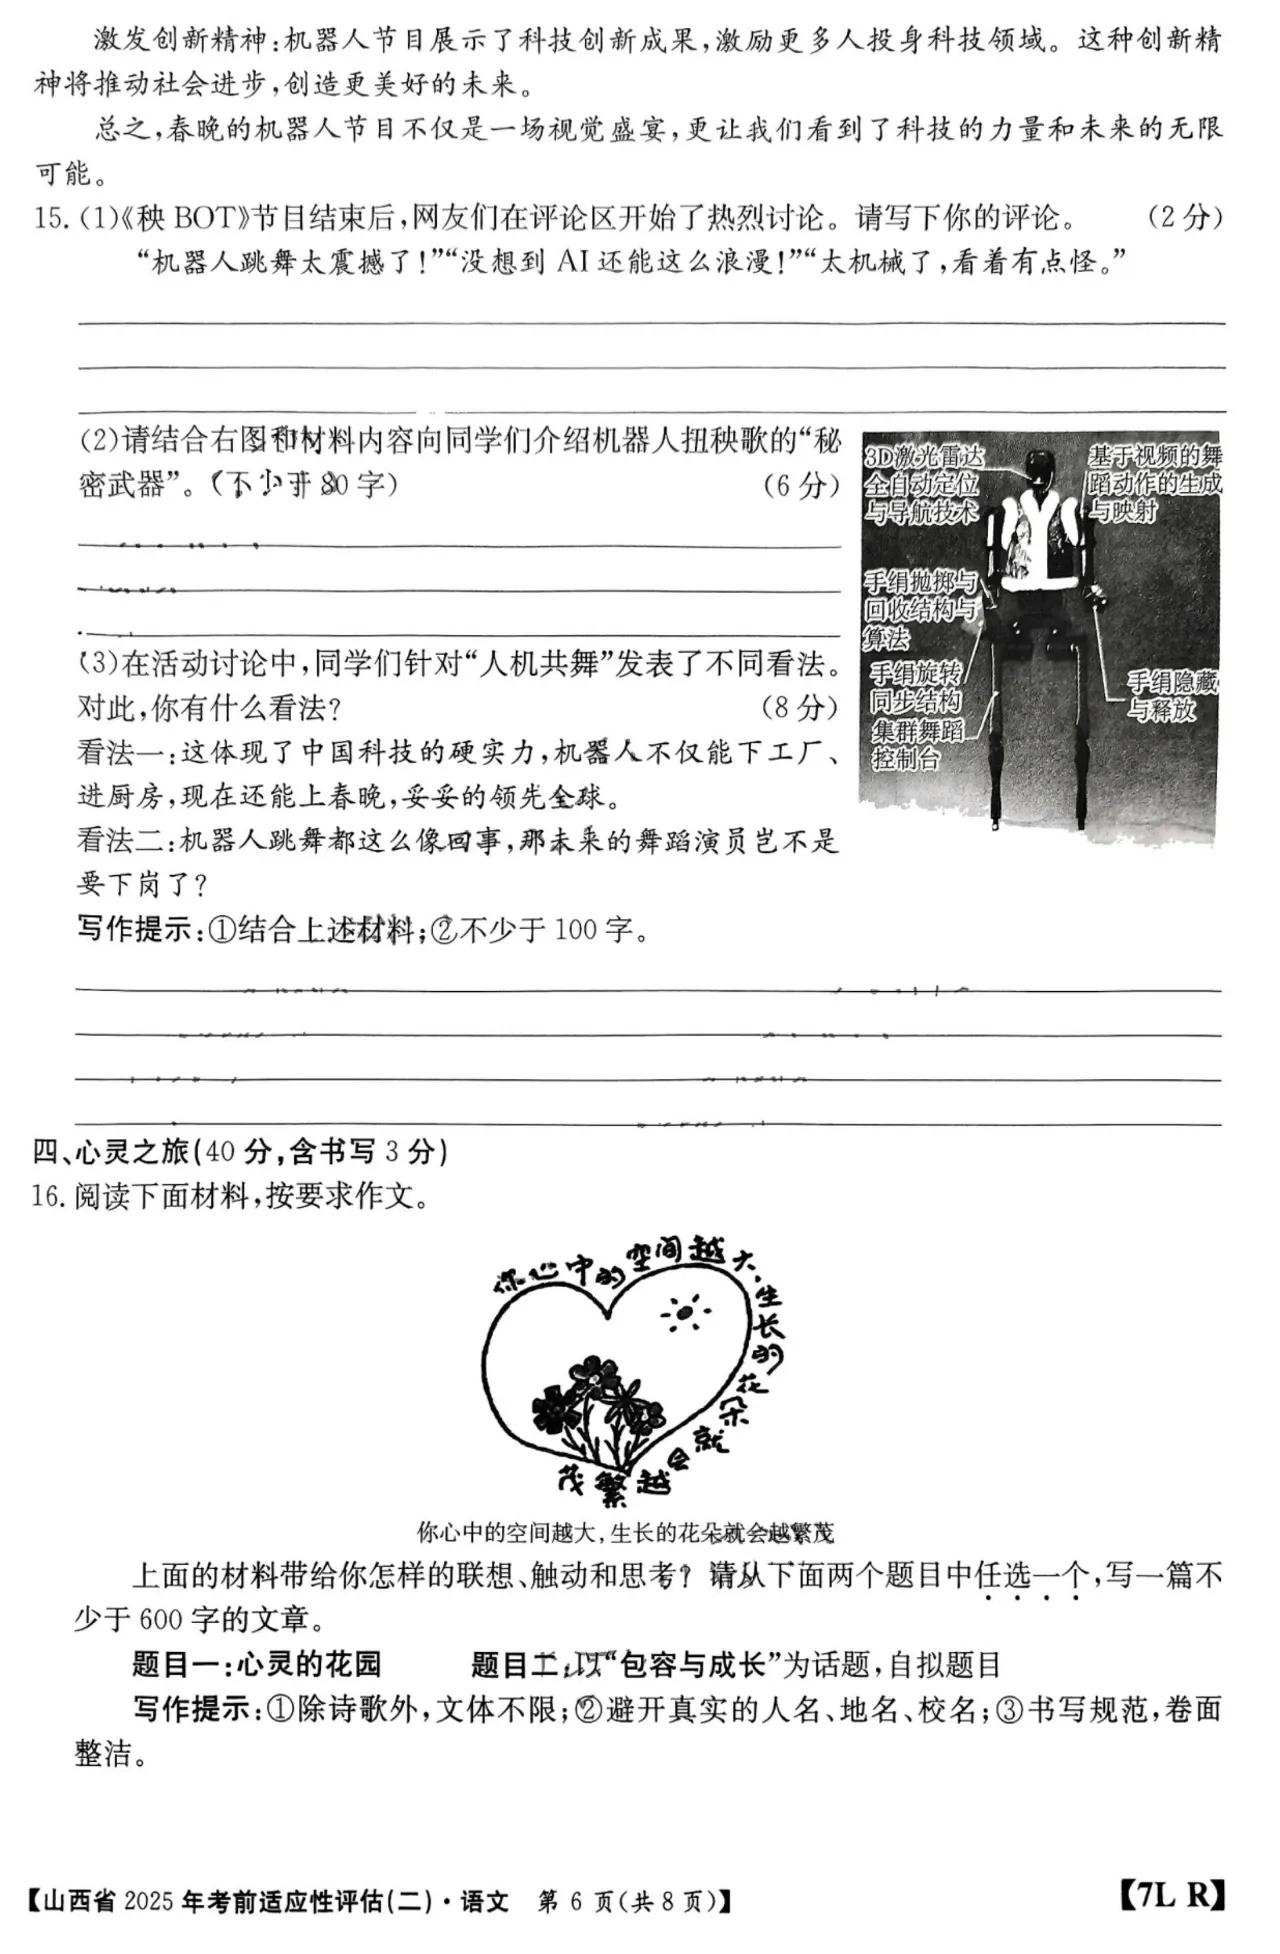 激发创新精神:机器人节目展示了科技创新成果,激励更多人投身科技领域。这种创新精
神将推动社会进步,创造更美好的未来。
总之,春晚的机器人节目不仅是一场视觉盛宴,更让我们看到了科技的力量和未来的无限
可能。
15.(1)《秧 BOT》节目结束后,网友们在评论区开始了热烈讨论。请写下你的评论。 (2 分)
“机器人跳舞太震撼了!”“没想到 AI 还能这么浪漫!”“太机械了,看着有点怪。”
(2)请结合右图和材料内容向同学们介绍机器人扭秧歌的“秘
密武器”。(不少于 80 字) (6 分)
3D激光雷达
全自动定位
与导航技术
基于视频的舞
蹈动作的生成
与映射
手绢抛掷与
回收结构与
算法
手绢旋转
同步结构
集群舞蹈
控制台
手绢隐藏
与释放
(3)在活动讨论中,同学们针对“人机共舞”发表了不同看法。
对此,你有什么看法? (8 分)
看法一:这体现了中国科技的硬实力,机器人不仅能下工厂、
进厨房,现在还能上春晚,妥妥的领先全球。
看法二:机器人跳舞都这么像回事,那未来的舞蹈演员岂不是
要下岗了?
写作提示:①结合上述材料;②不少于 100 字。
四、心灵之旅(40 分,含书写 3 分)
16. 阅读下面材料,按要求作文。
你心中的空间越大,生长的花朵就会越繁茂
你心中的空间越大,生长的花朵就会越繁茂
上面的材料带给你怎样的联想、触动和思考? 请从下面两个题目中任选一个,写一篇不
少于 600 字的文章。
题目一:心灵的花园 题目二:以“包容与成长”为话题,自拟题目
写作提示:①除诗歌外,文体不限;②避开真实的人名、地名、校名;③书写规范,卷面
整洁。
【山西省 2025 年考前适应性评估(二)·语文 第 6 页(共 8 页)】
【7L R】